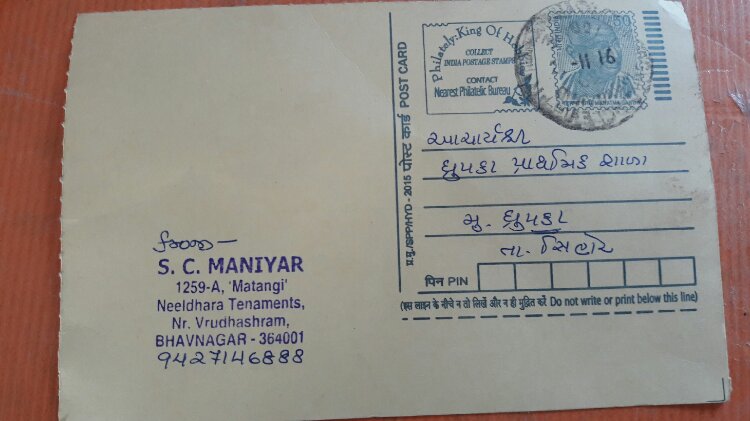 Philately: King Of Ho
COLLECT
INDIA POSTAGE STAMPS
CONTACT
Nearest Philatelic Bureau
50
-11 16
प्र.मु./SPP/HYD - 2015 पोस्ट कार्ड POST CARD
આચાર્યશ્રી
ધ્રુપકા પ્રાથમિક શાળા
મુ. ધ્રુપકા
તા. સિહોર
पिन PIN
(इस लाइन के नीचे न तो लिखें और न ही मुद्रित करें Do not write or print below this line)
S. C. MANIYAR
1259-A, 'Matangi'
Neeldhara Tenaments,
Nr. Vrudhashram,
BHAVNAGAR - 364001
9427146888